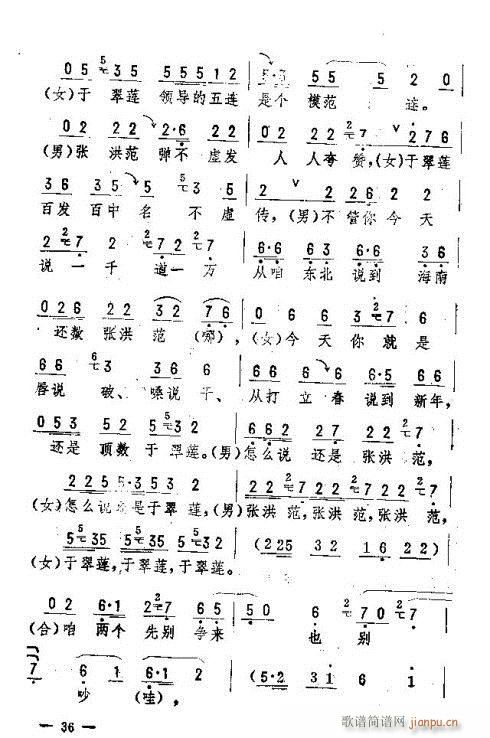 0 5 5 3 5 5 5 5 5 1 2 5·3 5 5 5 2 0
(女)于 翠莲 领导的五连 是个 模范 连。
0 2 2 2 2·6 2 2 0 2 2 2 7 2 7 6
(男)张 洪范 弹不 虚发 人 人夸 赞,(女)于翠莲
3 6 3 5 5 3 2 2 2 2 6 2 6
百发 百中 名 不 虚 传,(男)不 管你 今天
2 7 2 7 2 2 7 6·6 6 3 6·6 3 6
说一 千 道一 万 从咱 东北 说到 海南
0 2 6 2 2 3 2 7 6 0 2 6 3 2 7 6
还数 张洪 范 (哪), (女)今天 你 就是
6 6 3 3 6 6 6 6 6 6·5 6 6
唇说 破、嗓说 干、 从打 立春 说到 新年,
0 5 3 5 2 5 3 2 6 6 2 6 2 2 2 7
还是 顶数 于翠莲。(男)怎么说 还是 张洪 范,
2 2 5 5·3 5 3 2 2 2 2 7 2 2 2 7 2 2 2 7
(女)怎么说 还是于翠莲, (男)张洪 范,张洪 范,张洪 范,
5 3 5 5 3 5 5 3 2 (2 2 5 3 2 1 6 2 2)
(女)于翠莲,于翠莲,于翠莲。
0 2 6·1 2 7 6 5 5 0 6 7 0 7
(合)咱 两个 先别 争来 也 别
7 6 1 6·1 2 (5·3 2 1 6 1 2)
吵 (哇),
— 36 —
歌谱简谱网 jianpu.cn